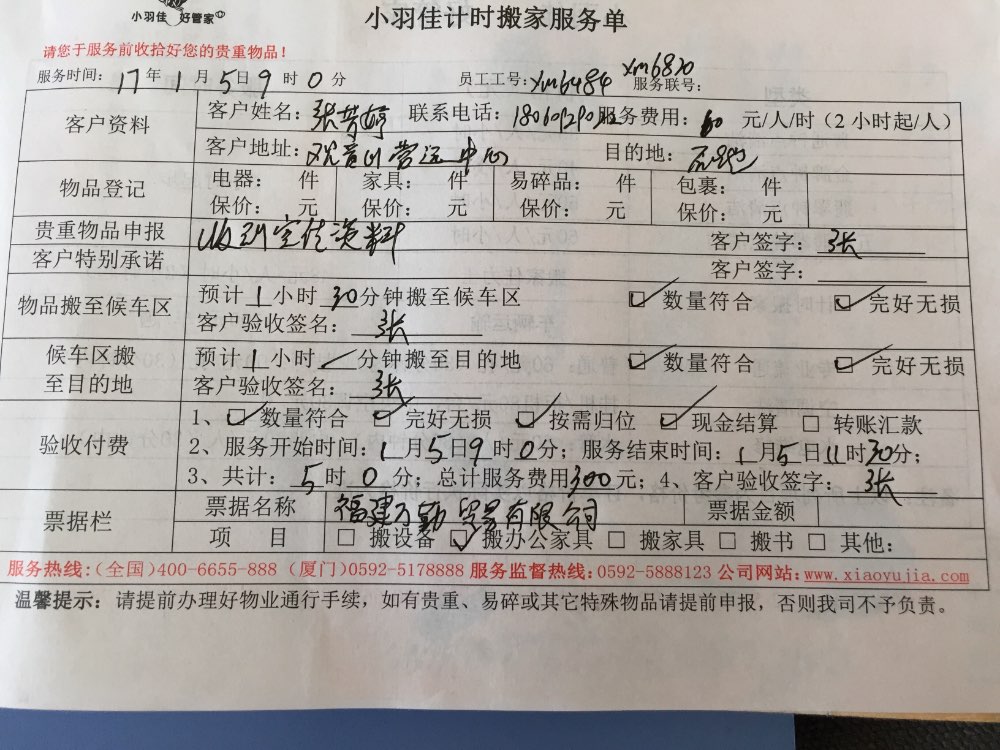 小羽佳 好管家
小羽佳计时搬家服务单
请您于服务前收拾好您的贵重物品！
服务时间：17年1月5日9时0分 员工工号：xm6484 xm6820 服务联号：
客户资料 客户姓名：张 婷 联系电话： 服务费用：60 元/人/时（2小时起/人）
客户地址：观音山营运中心 目的地：
物品登记 电器： 件 家具： 件 易碎品： 件 包裹： 件
保价： 元 保价： 元 保价： 元 保价： 元
贵重物品申报 收到宝佳资料 客户签字：张
客户特别承诺 客户签字：
物品搬至候车区 预计1小时30分钟搬至候车区 ☑数量符合 ☑完好无损
客户验收签名：张
候车区搬至目的地 预计1小时/分钟搬至目的地 ☑数量符合 ☑完好无损
客户验收签名：张
验收付费 1、☑数量符合 ☑完好无损 ☑按需归位 ☑现金结算 □转账汇款
2、服务开始时间：1月5日9时0分；服务结束时间：1月5日11时30分；
3、共计：5时0分；总计服务费用300元；4、客户验收签字：张
票据栏 票据名称 福建万勤贸易有限公司 票据金额
项 目 □搬设备 ☑搬办公家具 □搬家具 □搬书 □其他：
服务热线：（全国）400-6655-888（厦门）0592-5178888 服务监督热线：0592-5888123 公司网站：www.xiaoyujia.com
温馨提示：请提前办理好物业通行手续，如有贵重、易碎或其它特殊物品请提前申报，否则我司不予负责。